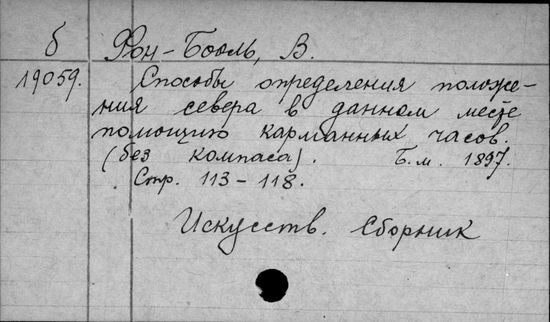 б Фон-Бооль, В.
19059. Способы определения положе-
ния севера в данном месте
помощию карманных часов.
(без компаса). Б.м. 1897.
Стр. 113-118.
Искусств. Сборник